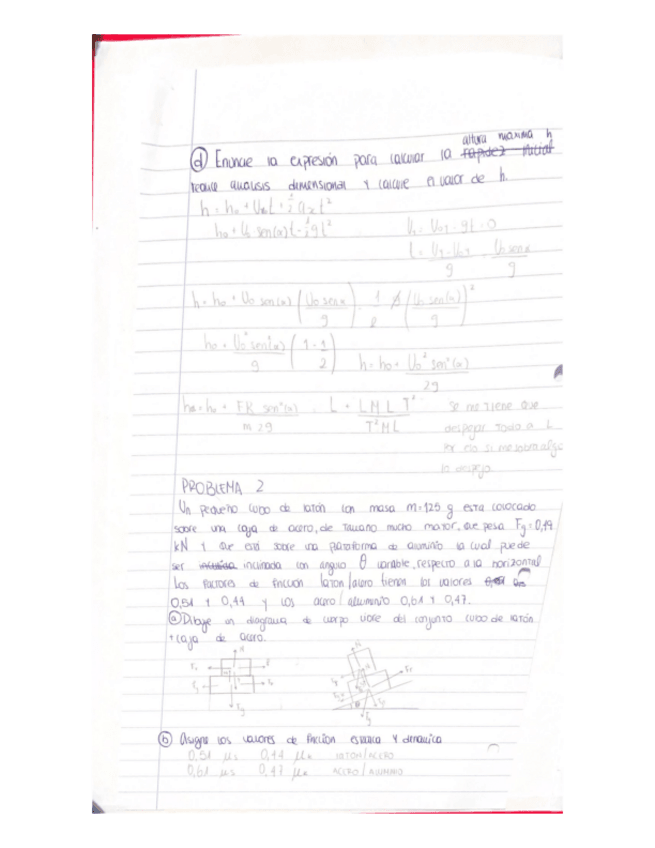 altura maxima h
d) Enuncie la expresión para calcular la rapidez inicial
realice analisis dimensional y calcule el valor de h.
h = h₀ + U₀t + ½ a t²
h₀ + U₀ sen(α)t - ½ g t²
U₁ = U₀₁ - gt = 0
t = U₁ - U₀₁ / g = U₀ sen α / g
h = h₀ + U₀ sen(α) (U₀ sen α / g) - 1/2 g (U₀ sen(α) / g)²
h₀ + U₀² sen²(α) / g (1 - 1/2)
h = h₀ + U₀² sen²(α) / 2g
h = h₀ + FR sen²(α) / m 2g
L + L M L T² / T² M L
se me tiene que
despejar todo a L
Por no si me sobra algo
lo despejo.
PROBLEMA 2
Un pequeño cubo de latón con masa m=125 g esta colocado
sobre una caja de acero, de tamaño mucho mayor, que pesa Fg=0,14
kN y que está sobre una plataforma de aluminio la cual puede
ser inclinada con angulo θ variable, respecto a la horizontal
Los factores de friccion laton/acero tienen los valores de
0,51 y 0,44 y los acero/aluminio 0,61 y 0,47.
a) Dibuje un diagrama de cuerpo libre del conjunto cubo de latón
+ caja de acero.
b) Asigne los valores de friccion estatica y dinamica
0,51 μs 0,44 μk LATON/ACERO
0,61 μs 0,47 μk ACERO/ALUMINIO